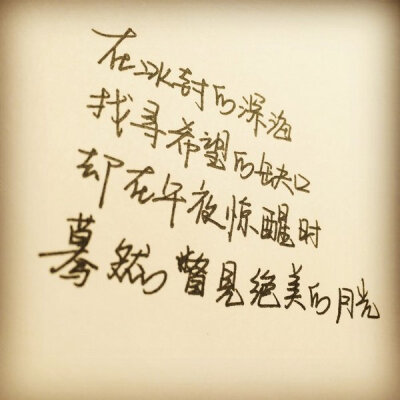 在冰封的深海
找寻希望的缺口
却在午夜惊醒时
蓦然的瞥见绝美的月光